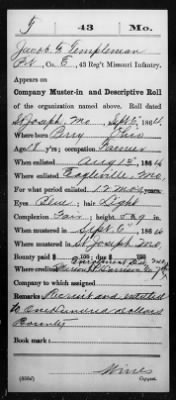 T | 43 | Mo.
Jacob G Templeman
Pvt, Co. E, 43 Reg't Missouri Infantry.
Appears on
Company Muster-in and Descriptive Roll
of the organization named above. Roll dated
St Joseph, Mo Sept 6, 1864.
Where born Perry Ohio
Age 18 y'rs; occupation Farmer
When enlisted Aug 13, 1864
Where enlisted Eagleville, Mo.
For what period enlisted 12 mos years.
Eyes Blue; hair Light
Complexion Fair; height 5 ft. 9 in.
When mustered in Sept. 6, 1864
Where mustered in St Joseph, Mo.
Bounty paid $ 100; due $ 100
Where credited Harrison Co 7
Company to which assigned
Remarks: Recruit and entitled
to One hundred dollars
Bounty
Book mark:
(356d) Copyist.